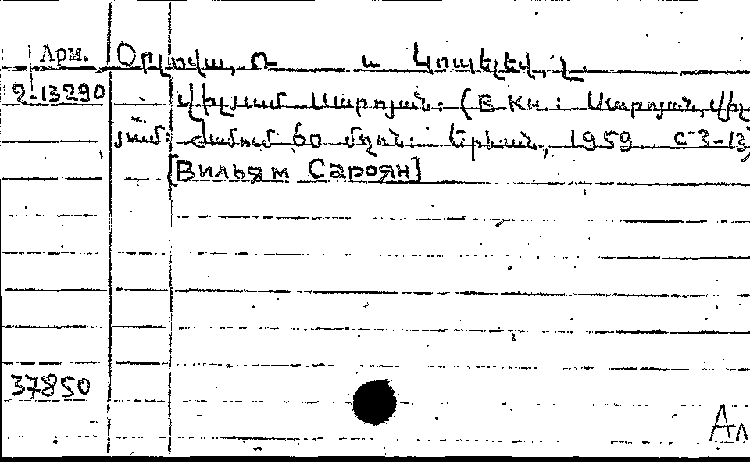 Арм. Օրլովա, Ռ. և Կոպելեվ, Լ.
2-13290 Վիլյամ Սարոյան. (В кн.: Սարոյան, Վիլ
յամ: Ժամում 60 մղոն: Երևան, 1959 с 3-13)
[Вильям Сароян]
37850
Ал